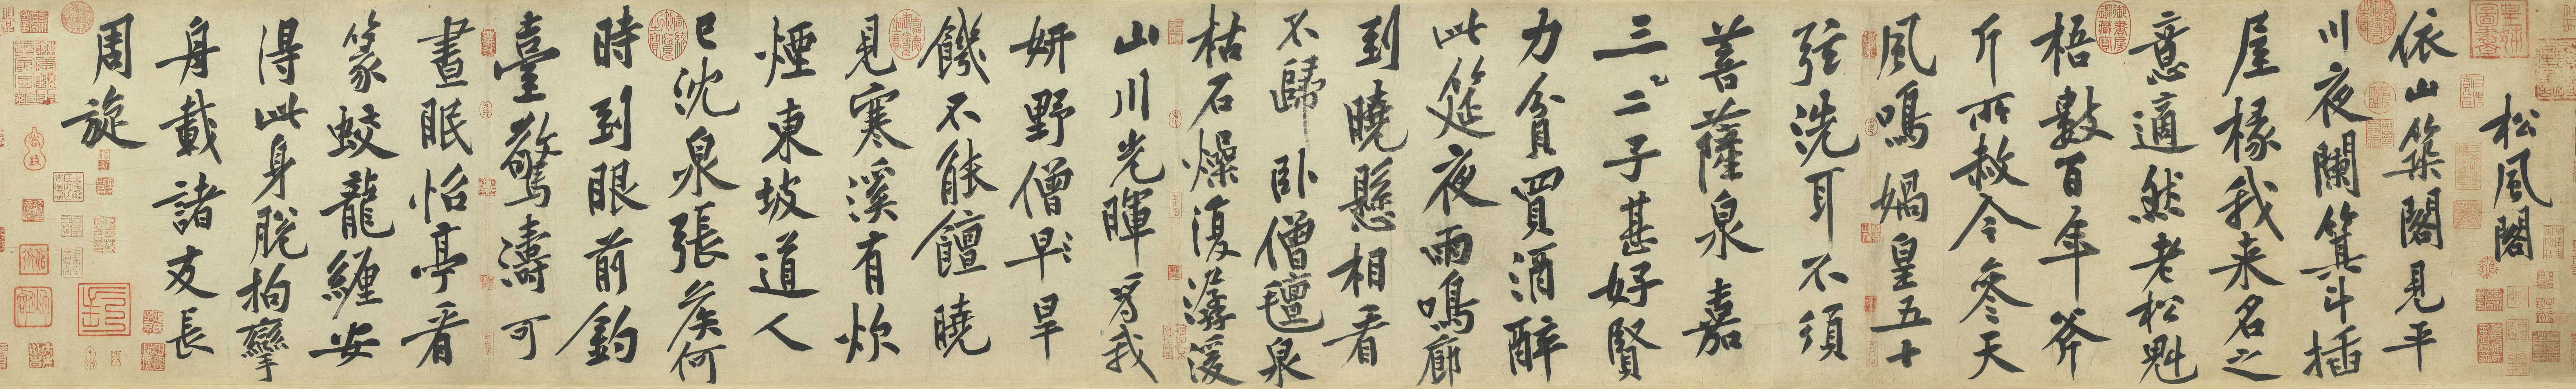 皇姊圖書
松風閣
依山築閣見平
川夜闌箕斗插
屋椽我来名之
意適然老松魁
梧數百年斧
斤所赦今參天
風鳴媧皇五十
弦洗耳不須
菩薩泉嘉
三二子甚好賢
力貧買酒醉
此筵夜雨鳴廊
到曉懸相看
不歸卧僧氈泉
枯石燥復潺湲
山川光暉為我
妍野僧早旱
饑不能饘曉
見寒溪有炊
煙東坡道人
已沈泉張侯何
時到眼前釣
臺驚濤可
晝眠怡亭看
篆蛟龍纏安
得此身脫拘攣
舟載諸友長
周旋